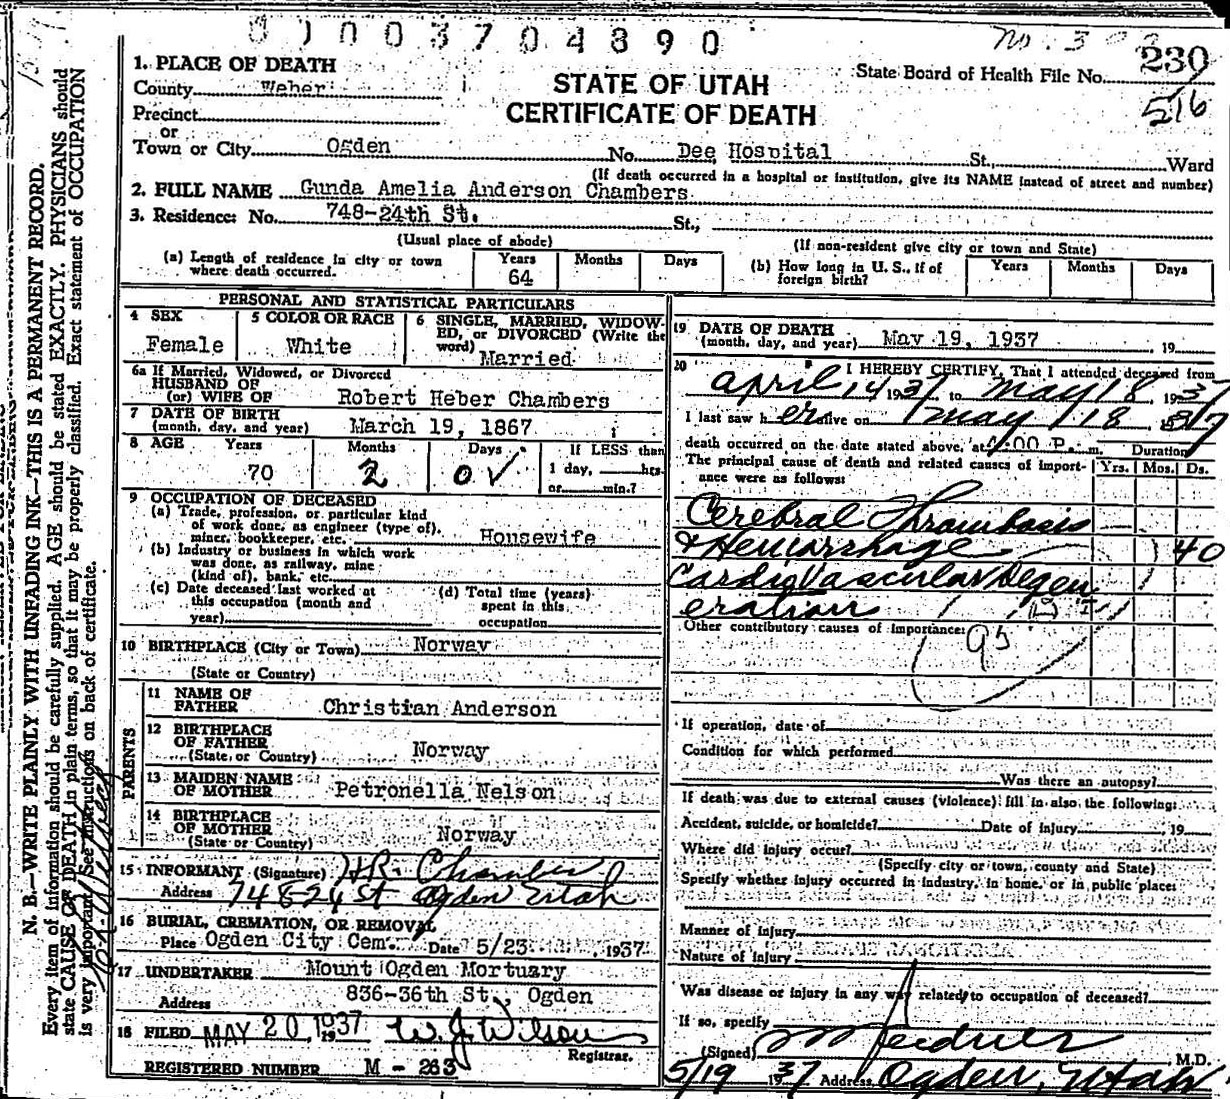 01003704890
230
516
1. PLACE OF DEATH
County Weber
State Board of Health File No.
STATE OF UTAH
CERTIFICATE OF DEATH
Precinct
or
Town or City Ogden No. Dee Hospital St. Ward
(If death occurred in a hospital or institution, give its NAME instead of street and number)
2. FULL NAME Gunda Amelia Anderson Chambers
3. Residence: No. 748-24th St. St.,
(Usual place of abode) (If non-resident give city or town and State)
(a) Length of residence in city or town where death occurred. Years 64 Months Days
(b) How long in U. S., if of foreign birth? Years Months Days
PERSONAL AND STATISTICAL PARTICULARS
4 SEX Female
5 COLOR OR RACE White
6 SINGLE, MARRIED, WIDOWED, or DIVORCED (Write the word) Married
6a If Married, Widowed, or Divorced
HUSBAND OF
(or) WIFE OF Robert Heber Chambers
7 DATE OF BIRTH
(month, day, and year) March 19, 1867
8 AGE Years 70 Months 2 Days 0 ✓ If LESS than 1 day, hrs. or min.?
9 OCCUPATION OF DECEASED
(a) Trade, profession, or particular kind
of work done, as engineer (type of),
miner, bookkeeper, etc. Housewife
(b) Industry or business in which work
was done, as railway, mine
(kind of), bank, etc.
(c) Date deceased last worked at
this occupation (month and
year)
(d) Total time (years)
spent in this
occupation
10 BIRTHPLACE (City or Town) Norway
(State or Country)
PARENTS
11 NAME OF
FATHER Christian Anderson
12 BIRTHPLACE
OF FATHER
(State or Country) Norway
13 MAIDEN NAME
OF MOTHER Petronella Nelson
14 BIRTHPLACE
OF MOTHER
(State or Country) Norway
15 INFORMANT (Signature) H.R. Chambers
Address 748-24 St Ogden Utah
16 BURIAL, CREMATION, OR REMOVAL
Place Ogden City Cem. Date 5/23 , 1937
17 UNDERTAKER Mount Ogden Mortuary
Address 836-36th St., Ogden
18 FILED MAY 20 1937, 19 W. J. Wilson
Registrar.
REGISTERED NUMBER M - 263
19 DATE OF DEATH
(month, day, and year) May 19, 1937 , 19
20 I HEREBY CERTIFY, That I attended deceased from
april 14 1937 to may 18, 1937
I last saw her alive on may 18, 1937
death occurred on the date stated above, at :00 P. m.
The principal cause of death and related causes of importance were as follows:
Duration
Yrs. Mos. Ds.
Cerebral Thrombosis
& Hemorrhage 40
Cardiovascular degen
eration
Other contributory causes of importance:
95
If operation, date of
Condition for which performed
Was there an autopsy?
If death was due to external causes (violence) fill in also the following:
Accident, suicide, or homicide? Date of injury , 19
Where did injury occur?
(Specify city or town, county and State)
Specify whether injury occurred in industry, in home, or in public place:
Manner of injury
Nature of injury
Was disease or injury in any way related to occupation of deceased?
If so, specify
(Signed) M.D.
5/19 1937 Address Ogden, Utah
N. B.—WRITE PLAINLY WITH UNFADING INK—THIS IS A PERMANENT RECORD.
Every item of information should be carefully supplied. AGE should be stated EXACTLY. PHYSICIANS should
state CAUSE OF DEATH in plain terms, so that it may be properly classified. Exact statement of OCCUPATION
is very important. See instructions on back of certificate.